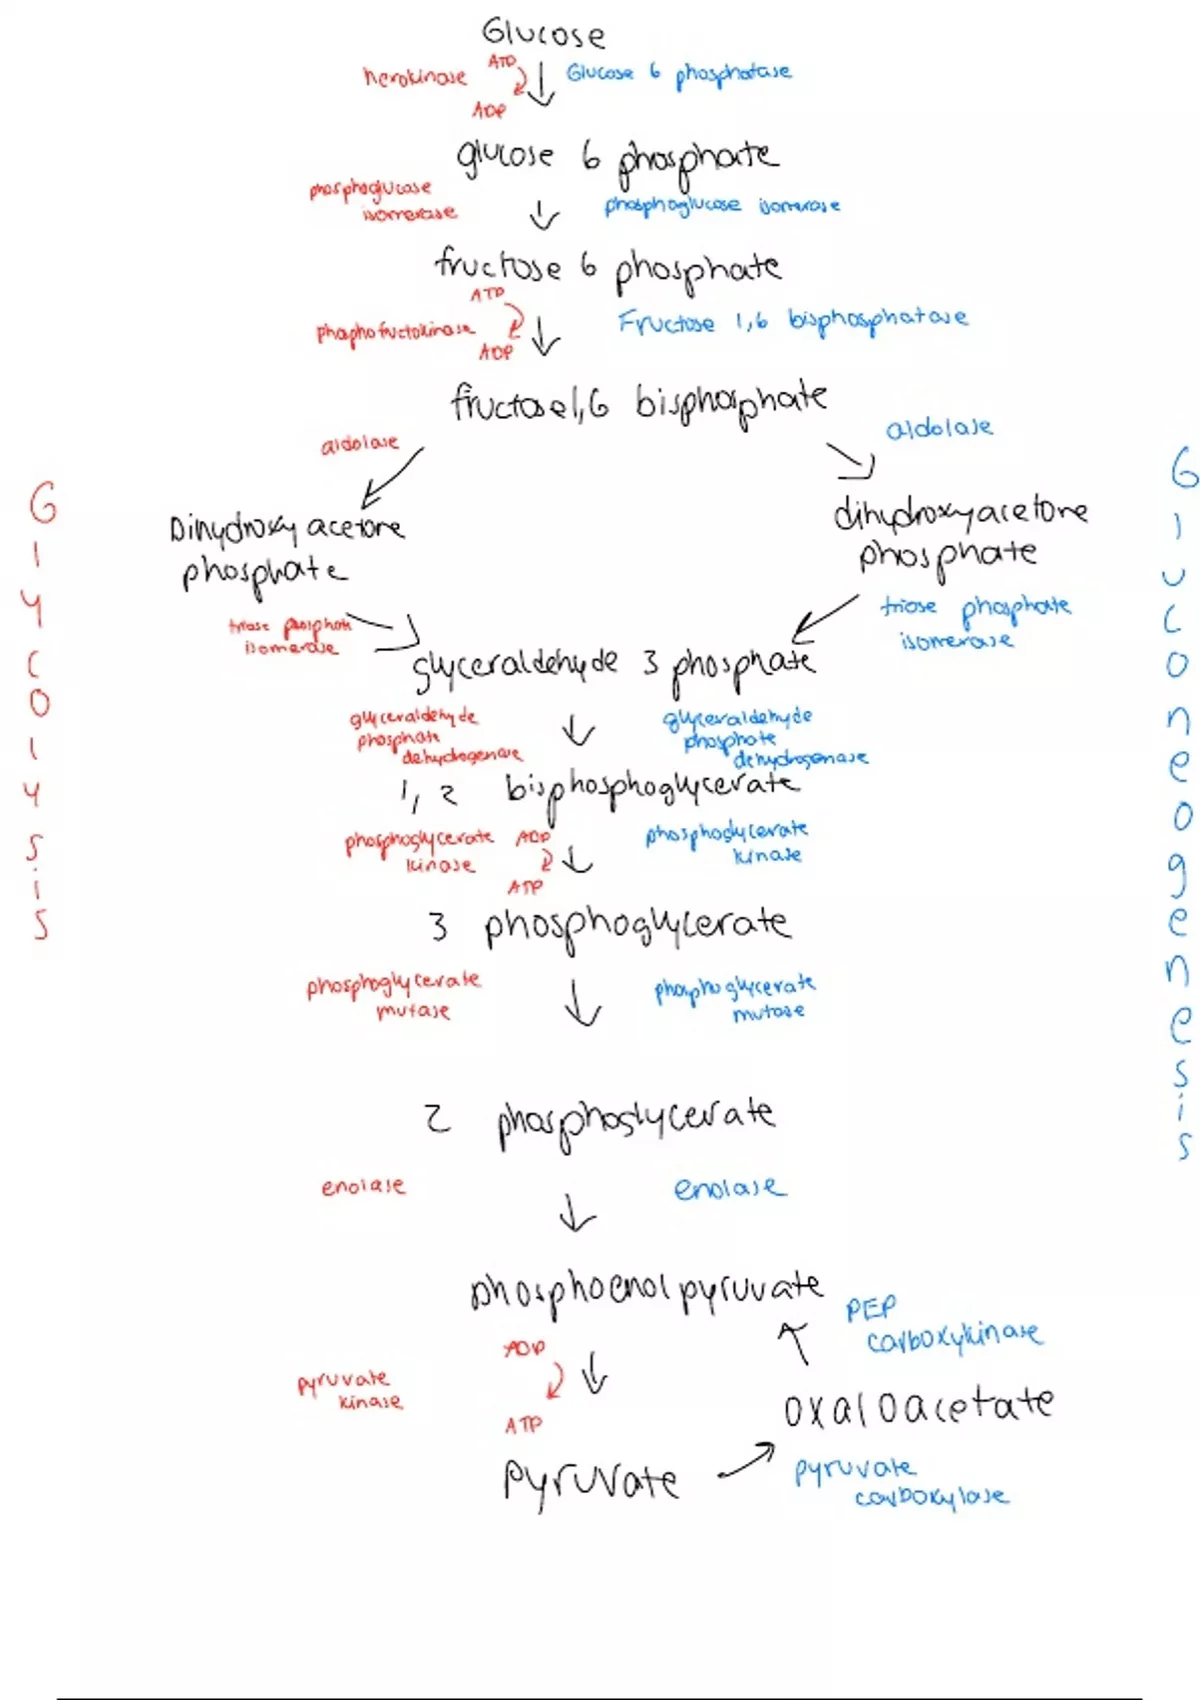 Glucose
hexokinase ATP Glucose 6 phosphatase
ADP
glucose 6 phosphate
phosphoglucose
isomerase phosphoglucose isomerase
fructose 6 phosphate
ATP
phosphofructokinase Fructose 1,6 bisphosphatase
ADP
fructose1,6 bisphosphate
aldolase aldolase
Dihydroxyacetone dihydroxyacetone
phosphate phosphate
triose phosphate triose phosphate
isomerase isomerase
glyceraldehyde 3 phosphate
glyceraldehyde glyceraldehyde
phosphate phosphate
dehydrogenase dehydrogenase
1, 2 bisphosphoglycerate
phosphoglycerate ADP phosphoglycerate
kinase kinase
ATP
3 phosphoglycerate
phosphoglycerate phosphoglycerate
mutase mutase
2 phosphoglycerate
enolase enolase
phosphoenolpyruvate
PEP
ADP carboxykinase
pyruvate
kinase oxaloacetate
ATP
pyruvate pyruvate
carboxylase
Glycolysis
Gluconeogenesis